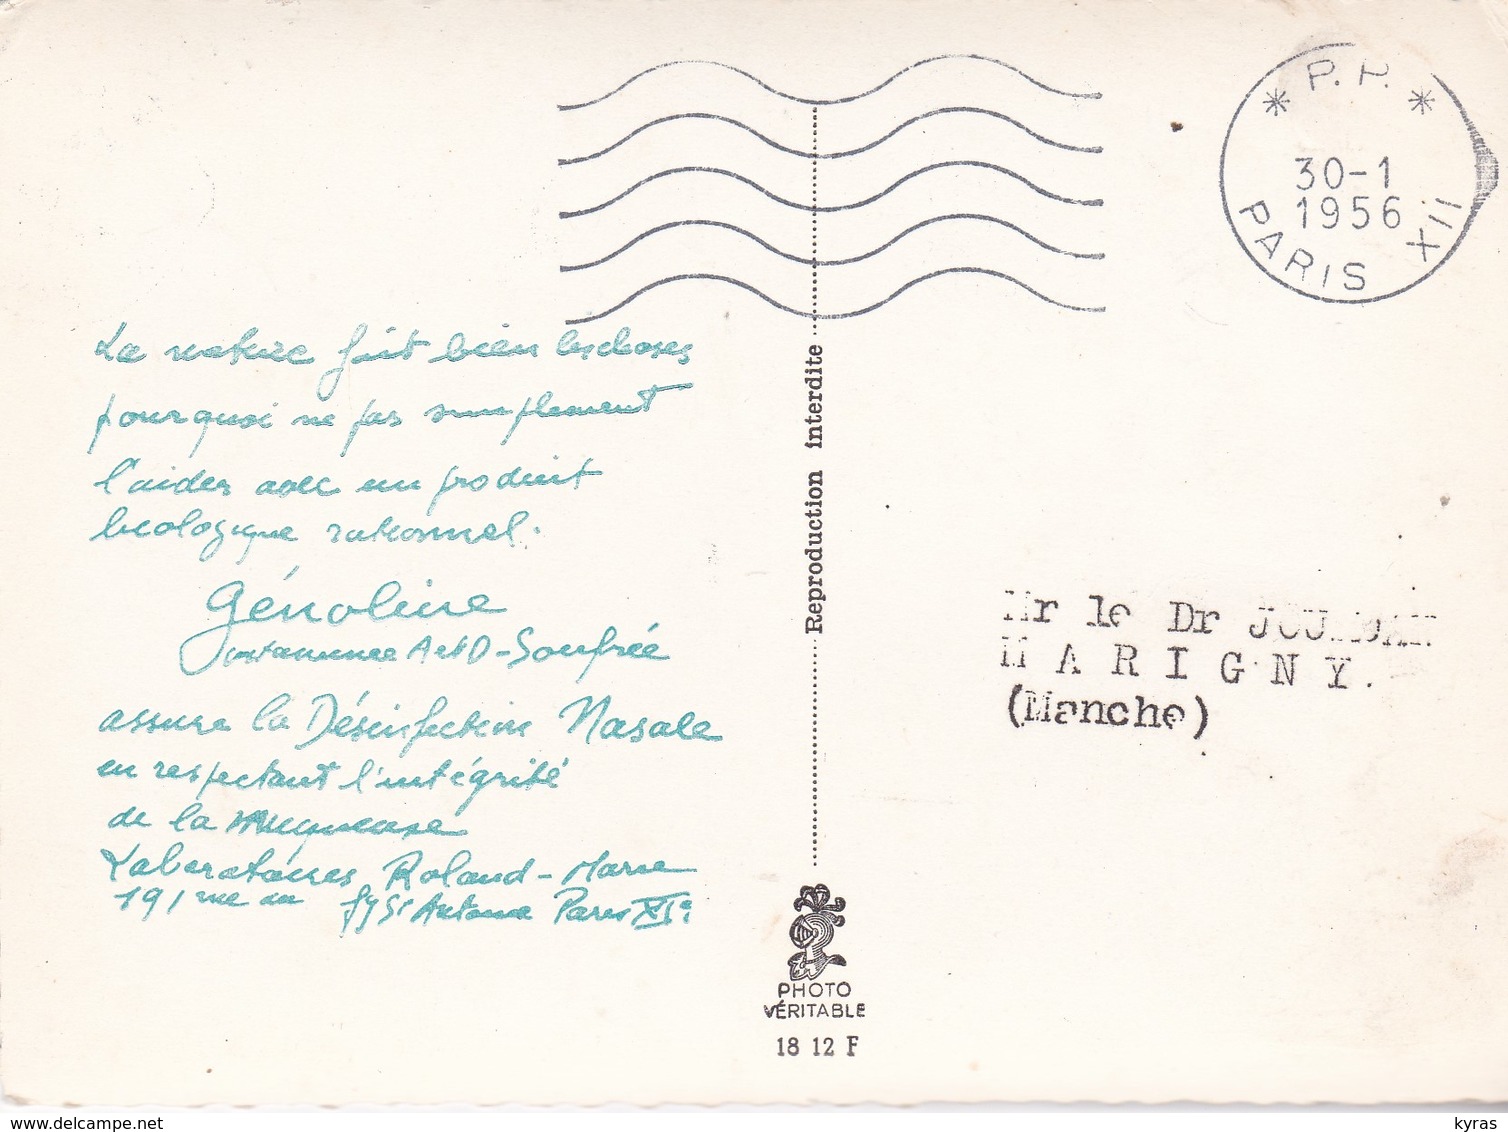 La nature fait bien les choses
pourquoi ne pas simplement
l'aider avec un produit
biologique rationnel.
Génoline
Vitaminée A et D - Soufrée
assure la Désinfection Nasale
en respectant l'intégrité
de la Muqueuse
Laboratoires Roland-Marie
191 rue du fg St Antoine Paris XIe
Reproduction interdite
PHOTO
VÉRITABLE
18 12 F
P.P.
30-1
1956
PARIS XII
Mr le Dr JOURDAN
MARIGNY.
(Manche)
www.delcampe.net
kyras